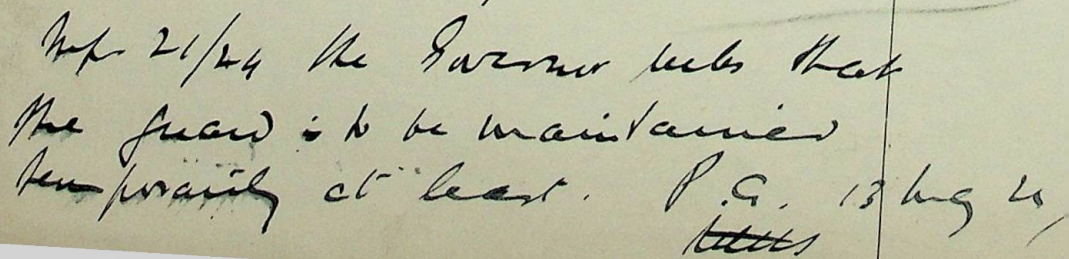 21/24 the Governor rules that
the guard is to be maintained
temporarily at least. P.A. 13 Aug 20